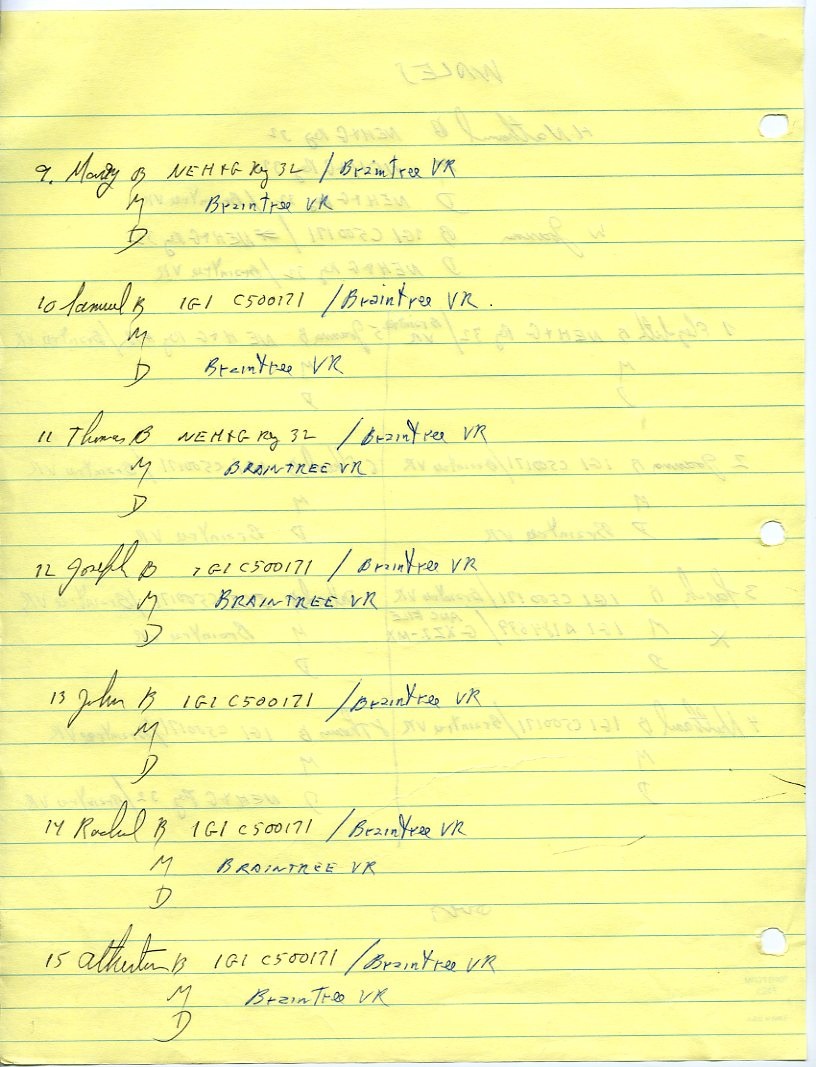 9. Mary B NEH+G Reg 32 / Braintree VR
M Braintree VR
D
10 Samuel B IGI C500171 / Braintree VR.
M
D Braintree VR
11 Thomas B NEH+G Reg 32 / Braintree VR
M BRAINTREE VR
D
12 Joseph B IGI C500171 / Braintree VR
M BRAINTREE VR
D
13 John B IGI C500171 / Braintree VR
M
D
14 Rachel B IGI C500171 / Braintree VR
M BRAINTREE VR
D
15 Atherton B IGI C500171 / Braintree VR
M BrainTree VR
D